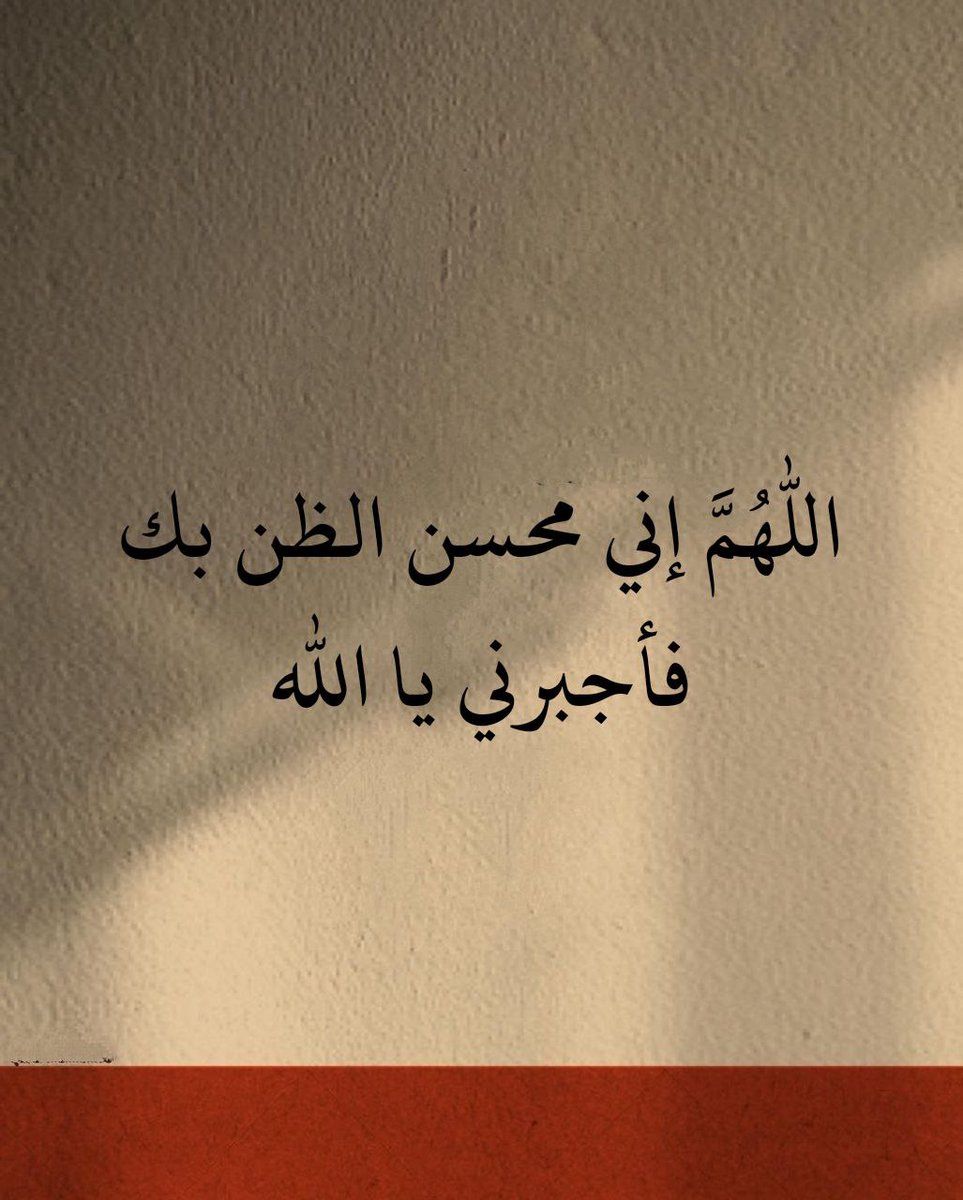 اللّٰهُمَّ إني محسن الظن بك
فأجبرني يا اللّٰه